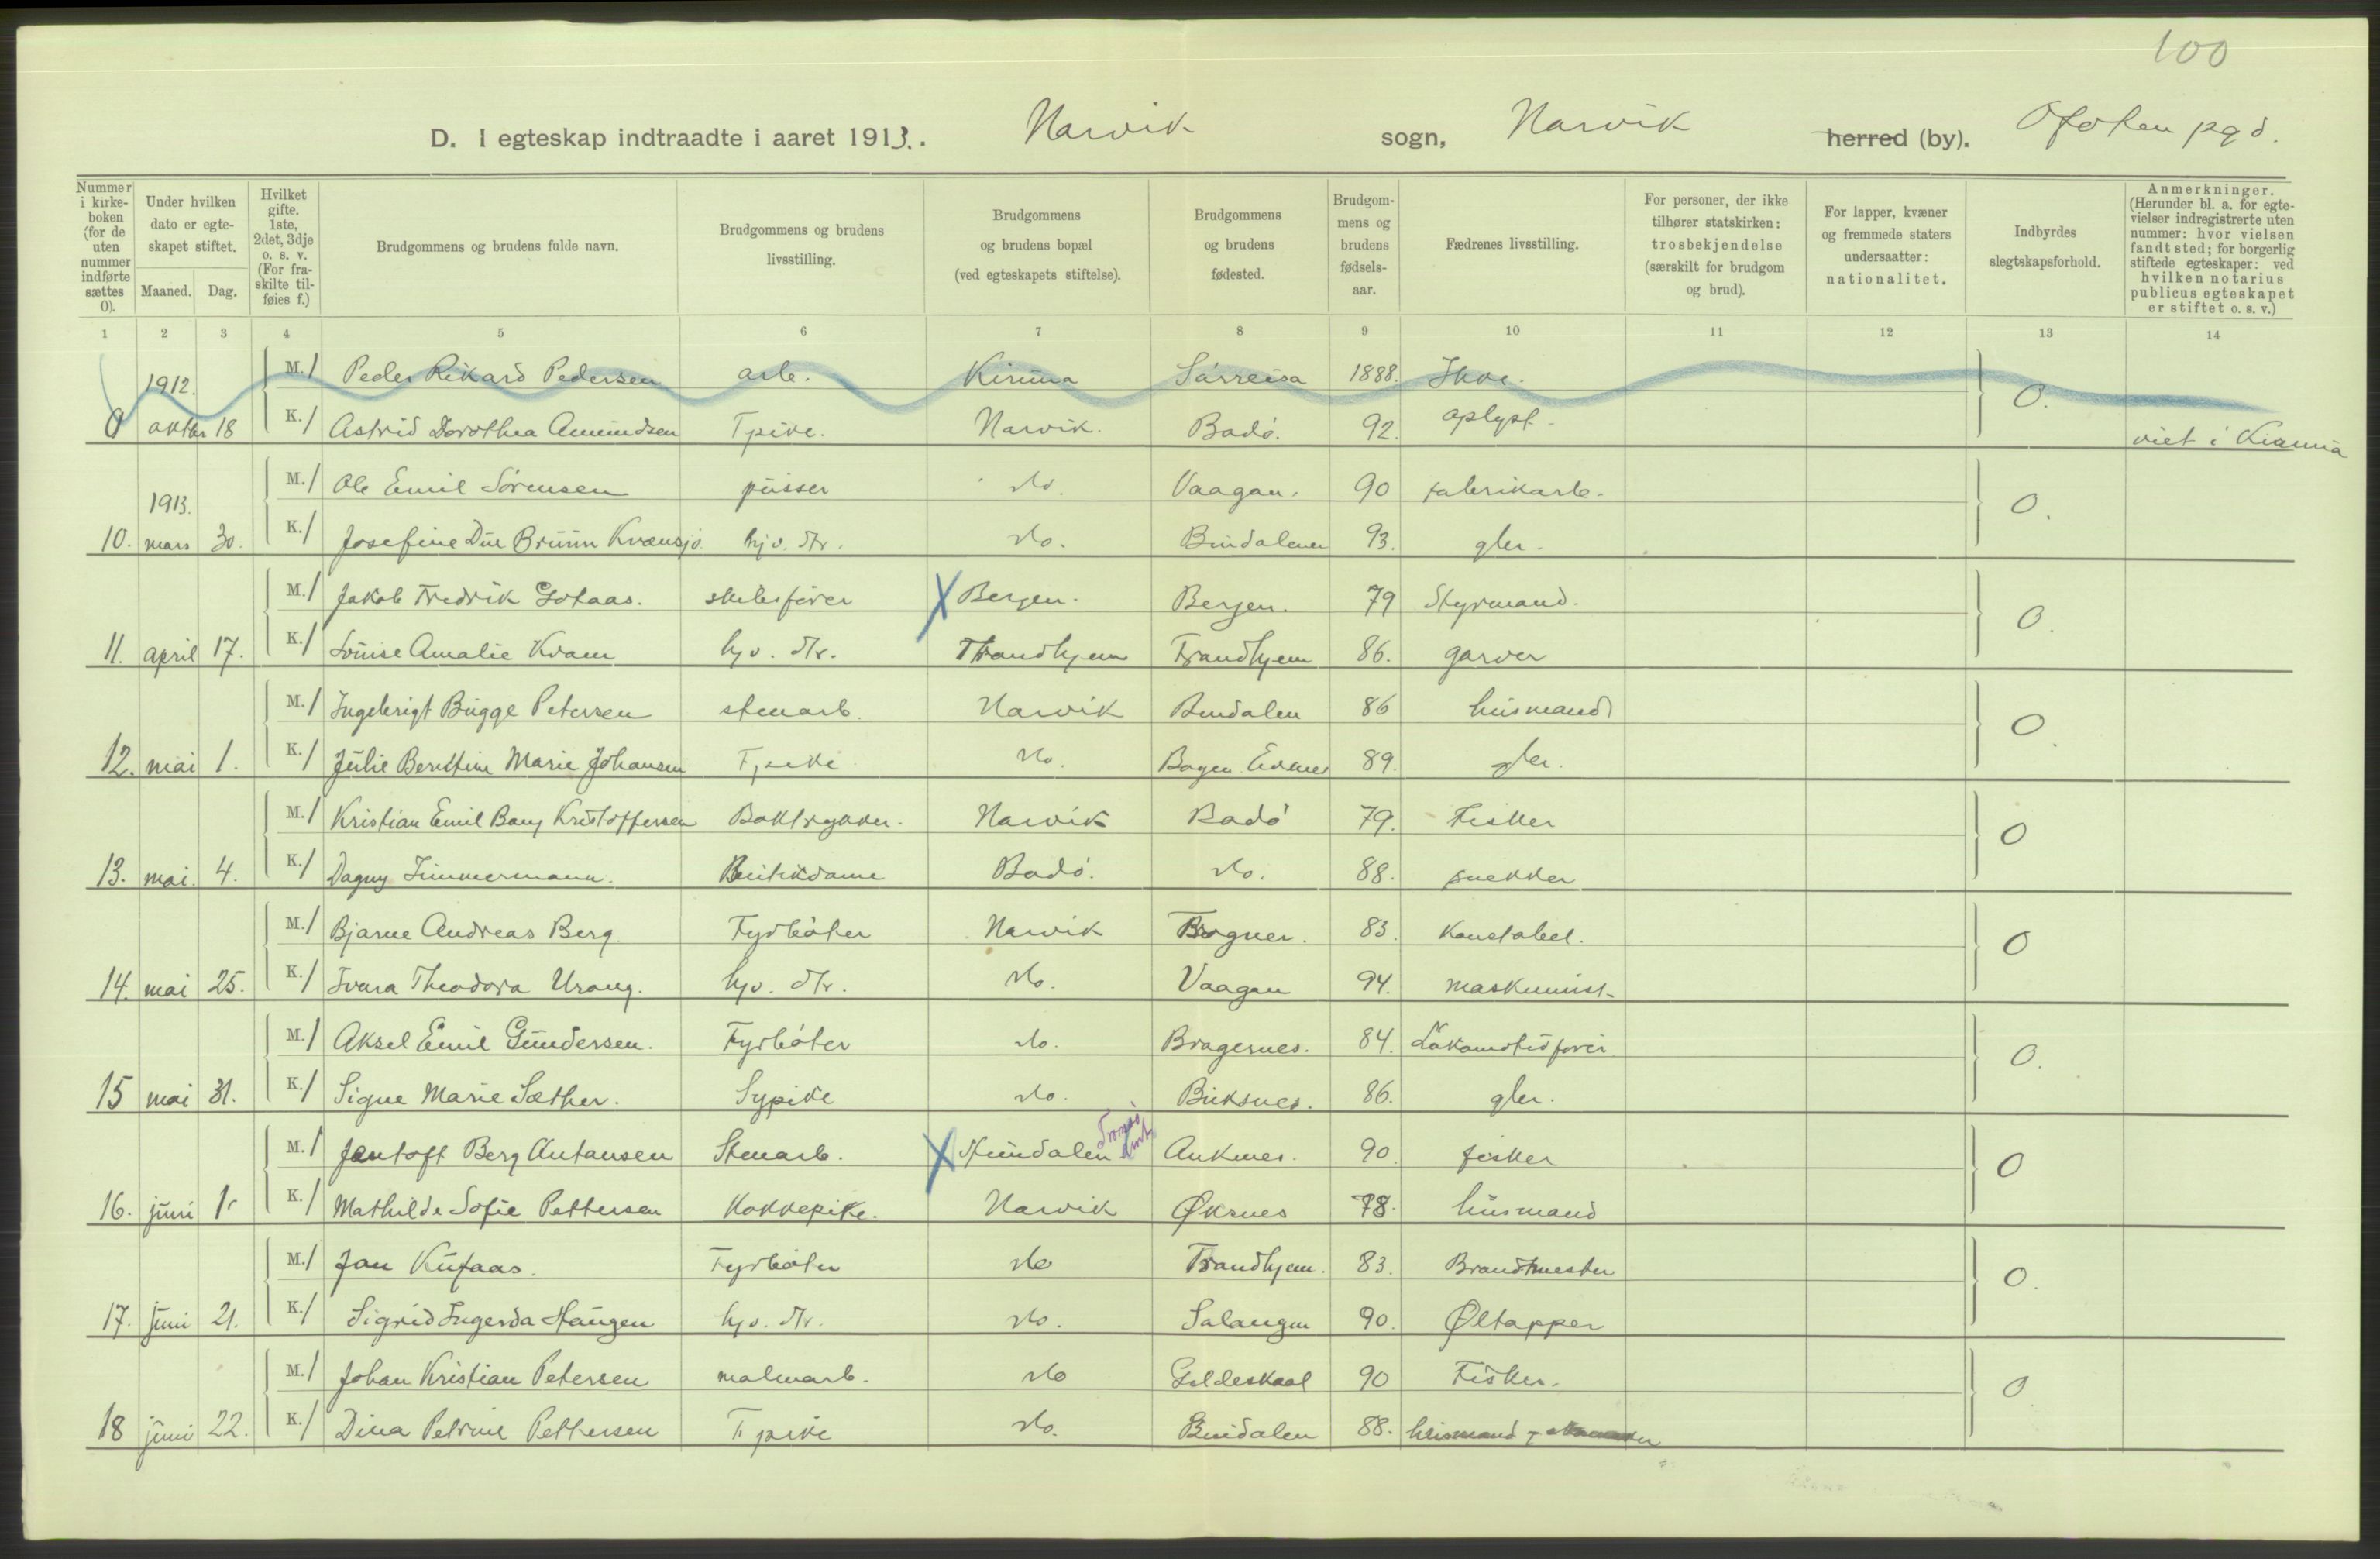 100
D. I egteskap indtraadte i aaret 1913. Narvik sogn, Narvik herred (by). Ofoten pgd.
Nummer i kirkeboken (for de uten nummer indførte sættes 0).
Under hvilken dato er egteskapet stiftet.
Maaned. Dag.
Hvilket gifte. 1ste, 2det, 3dje o. s. v. (For fraskilte tilføies f.)
Brudgommens og brudens fulde navn.
Brudgommens og brudens livsstilling.
Brudgommens og brudens bopæl (ved egteskapets stiftelse).
Brudgommens og brudens fødested.
Brudgommens og brudens fødselsaar.
Fædrenes livsstilling.
For personer, der ikke tilhører statskirken: trosbekjendelse (særskilt for brudgom og brud).
For lapper, kvæner og fremmede staters undersaatter: nationalitet.
Indbyrdes slegtskapsforhold.
Anmerkninger. (Herunder bl. a. for egtevielser indregistrerte uten nummer: hvor vielsen fandt sted; for borgerlig stiftede egteskaper: ved hvilken notarius publicus egteskapet er stiftet o. s. v.)
1 2 3 4 5 6 7 8 9 10 11 12 13 14
1912. M. / Peder Rikard Pedersen arb. Kiruna Sørreisa 1888. 0.
0 oktbr 18 K. / Astrid Dorothea Amundsen Tpike. Narvik. Bodø. 92. oplyst. viet i Kiruna
1913. M. / Ole Emil Sörensen pusser do. Vaagan. 90 fabrikarb. 0.
10. mars 30. K. / Josefine Brûun Kvænsjö hjv. dtr. do. Bindalen 93. gbr.
M. / Jakob Fredrik Gotaas. skibsförer X Bergen. Bergen. 79 Styrmand. 0.
11. april 17. K. / Lovise Amalie Kvam hjv. dtr. Trondhjem Trondhjem 86. garver
M. / Ingebrigt Bugge Petersen stenarb. Narvik Bindalen 86 husmand 0.
12. mai 1. K. / Julie Berntine Marie Johansen Tpike do. Bogen Evenes 89. gbr.
M. / Kristian Emil Bang Kristoffersen Boktrykker. Narvik Bodö 79. Fisker 0
13. mai. 4. K. / Dagny Timmermann. Butikdame Bodö. do. 88. snekker
M. / Bjarne Andreas Berg. Fyrböter Narvik Bragner. 83. Konstabel. 0
14. mai 25. K. / Theodora Urang. hjv. dtr. do. Vaagan 94. maskinist.
M. / Aksel Emil Gundersen. Fyrböter do. Bragernes. 84. Lokomotivförer 0.
15 mai 31. K. / Signe Marie Sæther. Sypike do. Buksnes. 86. gbr.
M. / Jentoft Berg Antonsen Stenarb. X Hundalen Tromsö amt Ankenes. 90. fisker 0
16. juni 1. K. / Mathilde Sofie Pettersen Kokkepike. Narvik Øksnes 78. husmand
M. / Jon Kufaas. Fyrböter do Trondhjem. 83. Brandmester 0.
17. juni 21. K. / Sigrid Ingerda Haugen hjv. dtr. do. Salangen 90. Øltapper
M. / Johan Kristian Petersen malmarb. do Gildeskaal 90 Fisker. 0.
18 juni 22. K. / Dina Petrine Pettersen Tpike do. Bindalen 88. husmand